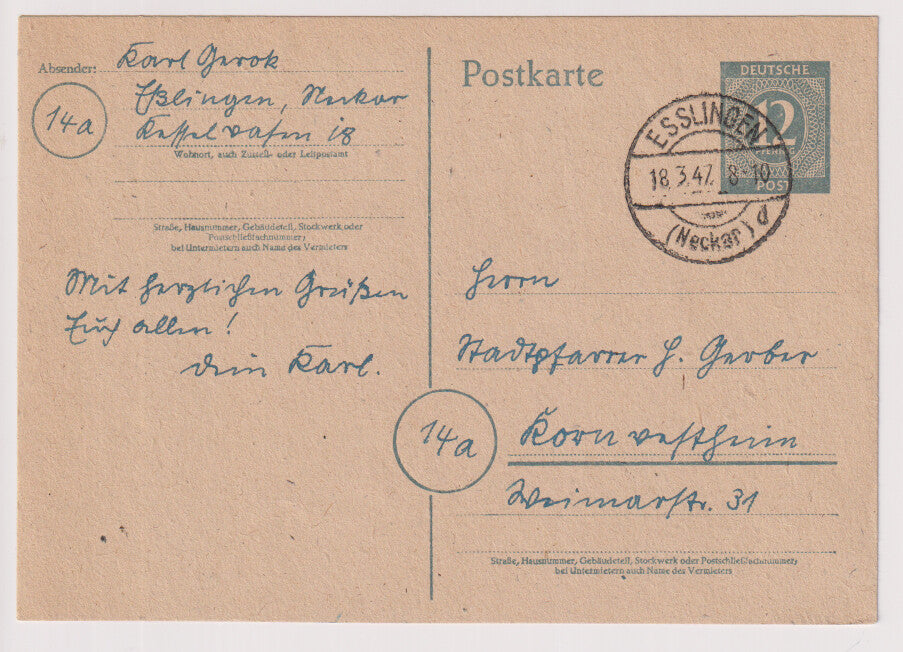 Absender: Karl Gerok
Eßlingen, Neckar
14a
Kesselwasen 18
Wohnort, auch Zustell- oder Leitpostamt
Straße, Hausnummer, Gebäudeteil, Stockwerk oder
Postschließfachnummer;
bei Untermietern auch Name des Vermieters
Mit herzlichen Grüßen
Euch allen!
Dein Karl.
Postkarte
DEUTSCHE
12
PFENNIG
POST
ESSLINGEN
18.3.47. 8-10
(Neckar) d
Herrn
Stadtpfarrer H. Gerber
14a
Kornwestheim
Weimarstr. 31
Straße, Hausnummer, Gebäudeteil, Stockwerk oder Postschließfachnummer;
bei Untermietern auch Name des Vermieters